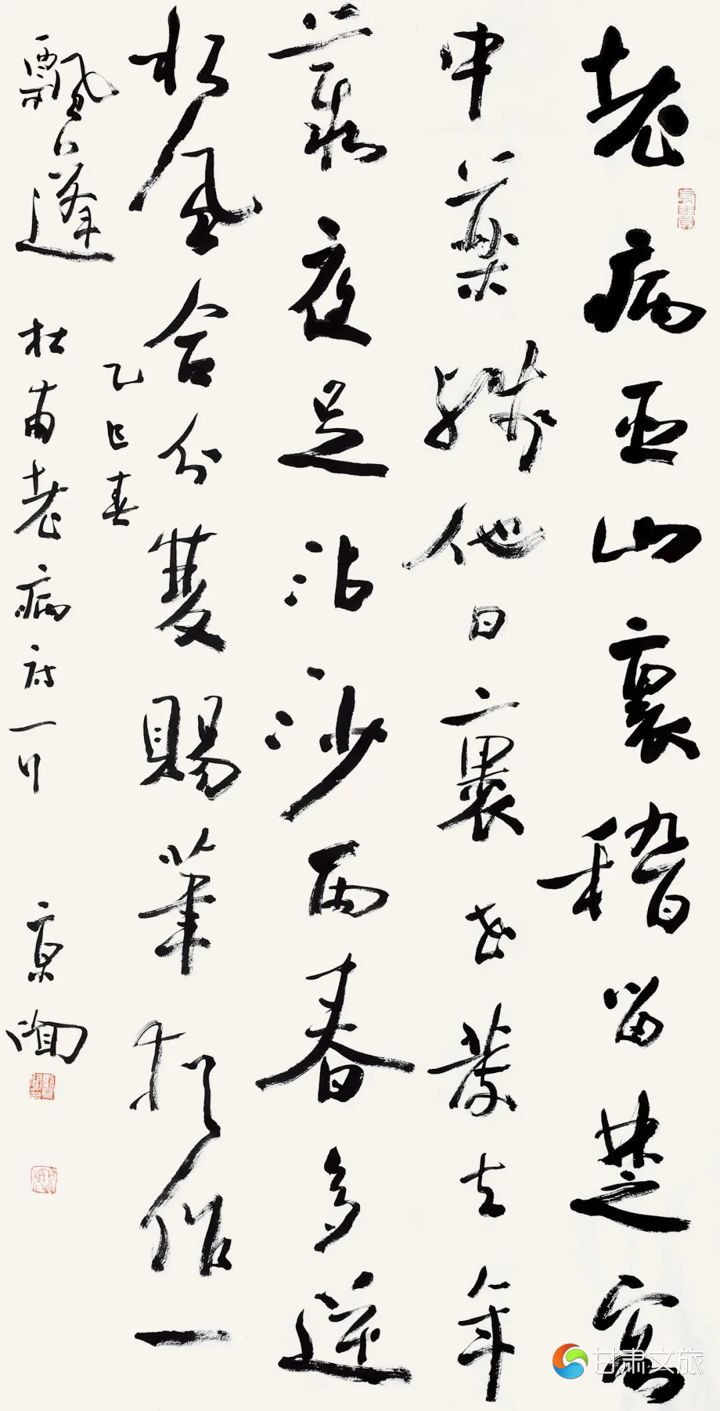 老病巫山裏稽留楚客
中藥殘他日裹花發去年
叢夜足沾沙雨春多逆
水風合分雙賜筆猶作一
飄蓬
乙巳春
杜甫老病詩一
甘肃文旅